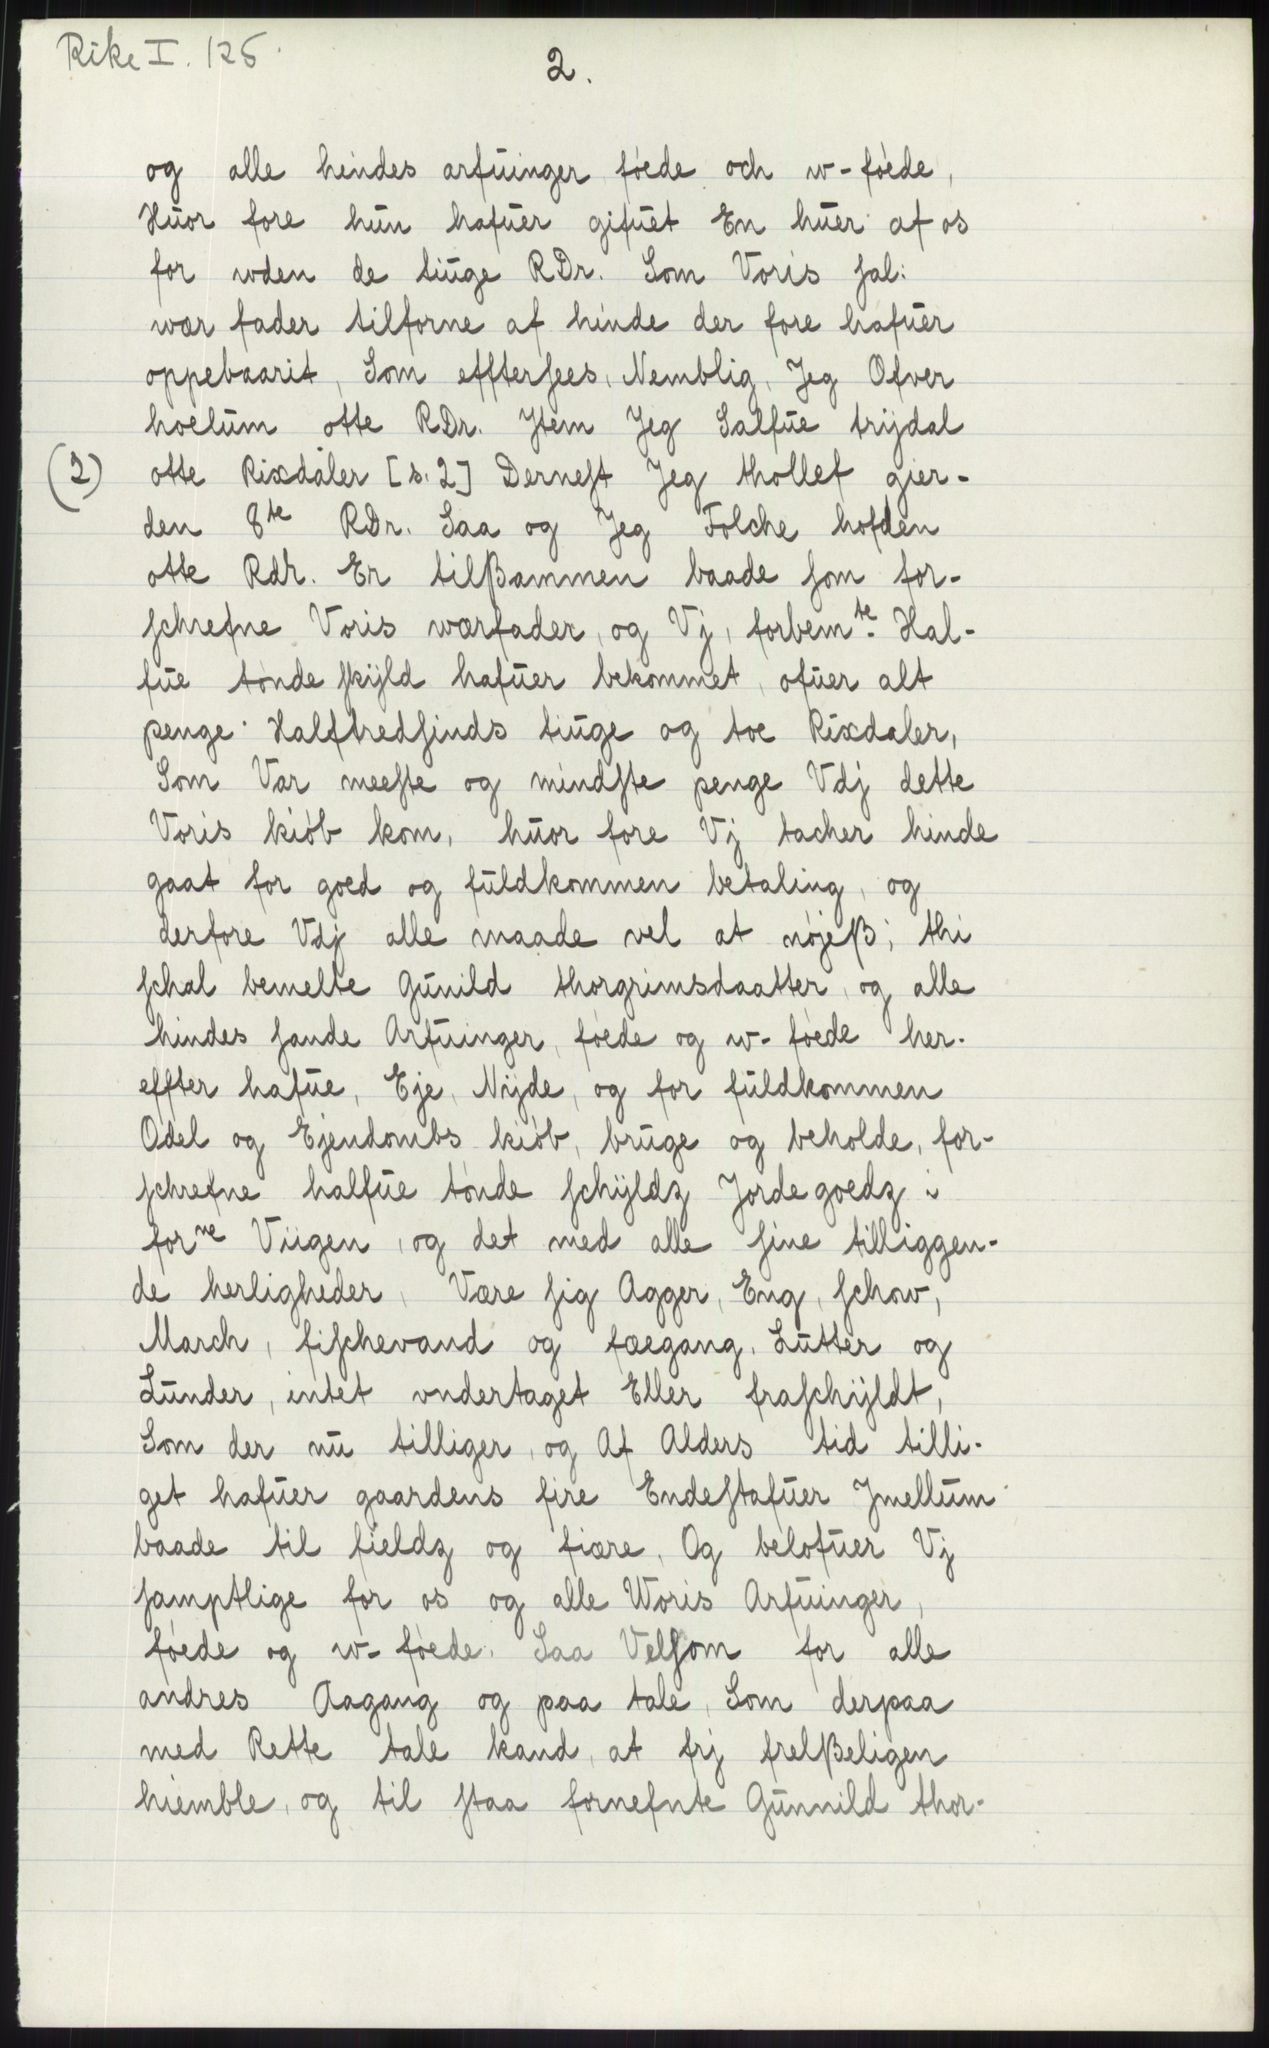 Rike I. 125.
2.
og alle hindes arfuinger, føede och w-føede,
Huor fore hun hafuer gifuet En huer af os
for uden de tiuge RDr. Som Voris sal:
vær fader tilforne af hinde der fore hafuer
oppebaarit, Som effterſees, Nemblig, Jeg Ofver
hoelum otte RDr. Jtem Jeg Salfue trijdal
(2) otte Rixdaler [s. 2] Derneſt Jeg thollef gier-
den 8te RDr. Saa og Jeg Folche hofden
otte Rdr. Er tilßammen baade ſom for-
ſchrefne Voris værfader, og Vj, forbemte Hal-
fue tønde ſkÿld hafuer bekommet, ofuer alt
penge Halftredſinds tiuge og toe Rixdaler,
Som Var meeſte og mindſte penge Vdj dette
Voris kiøb kom, huor fore Vj tacher hinde
gaat for goed og fuldkommen betaling, og
derfore Vdj alle maade vel at nøjeß; thi
ſchal bemelte Gunild thorgrimsdaatter, og alle
hindes ſande Arfuinger, føede og w-føede her-
effter hafue, Eje, Nÿde, og for fuldkommen
Odel og Ejendombs kiøb, bruge og beholde, for-
ſchrefne halfue tønde ſchÿldz Jorde goedz i
forne Viigen, og det med alle ſine tilliggen-
de herligheder, Være ſig Agger, Eng, ſchow,
March, fiſchevand og fæegang, Lutter og
Lunder, intet vndertaget Eller fraſchÿldt,
Som der nu tilliger, og Af Alders tid tilli-
get hafuer gaardens fire Endeſtafuer Jmellum
baade til fieldz og fiære, Og belofuer Vj
ſamptlige for os og alle Woris Arfuinger,
føede og w-føede, Saa Velſom for alle
andres Aagang og paa tale, Som derpaa
med Rette tale kand, at frj frelßeligen
hiemble, og til ſtaa fornefnte Gunnild thor-